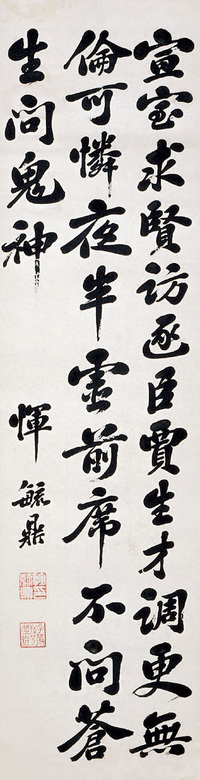 宣室求賢訪逐臣賈生才調更無
倫可憐夜半虛前席不問蒼
生問鬼神
惲毓鼎